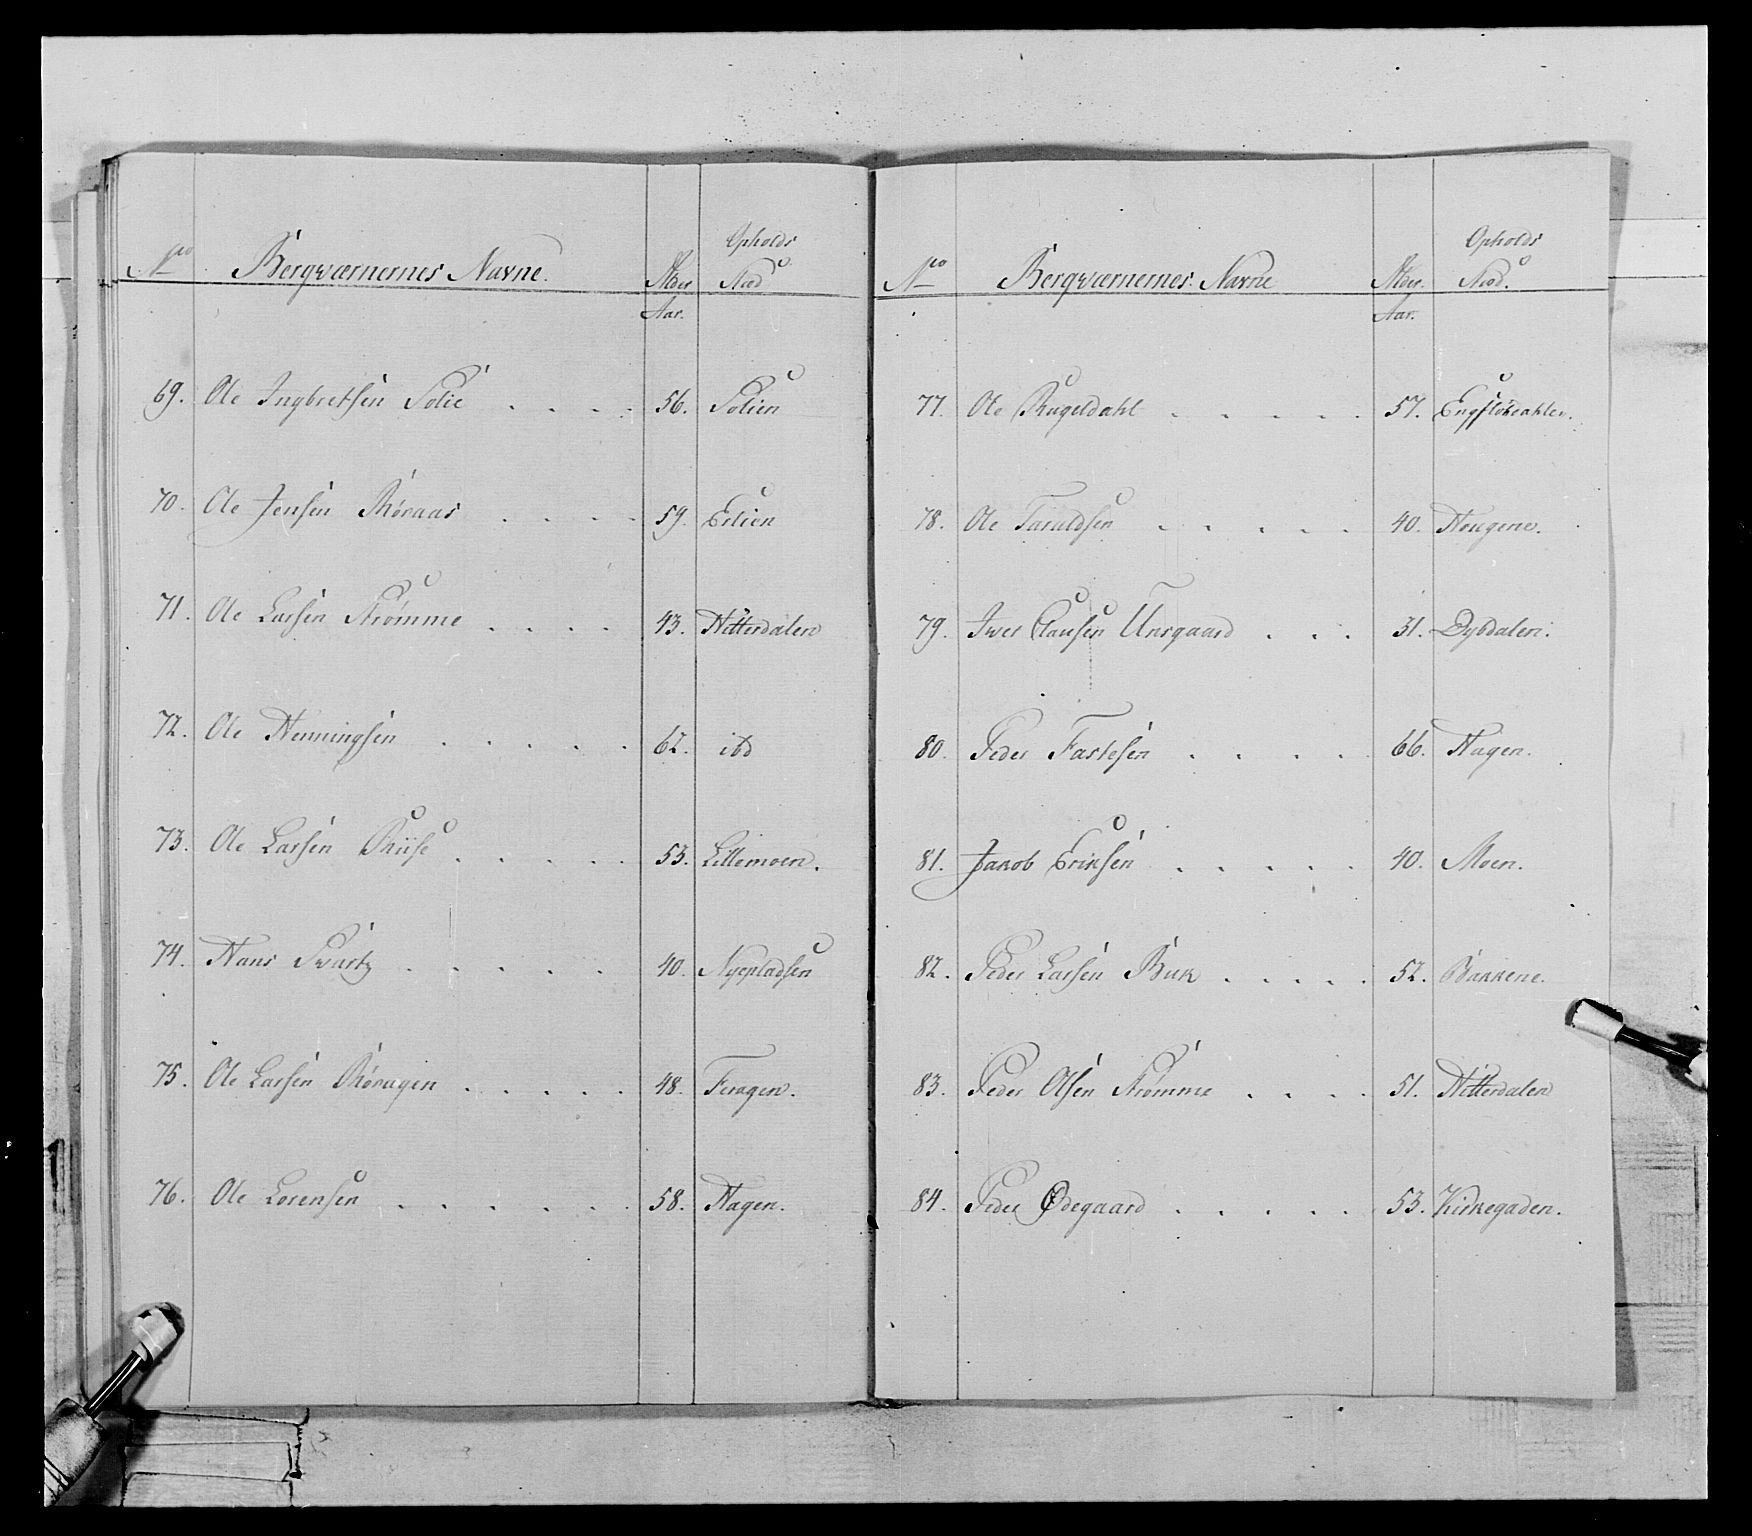 No Bergværnernes Navne. Alder Opholds Stæd
Aar.
69. Ole Ingbretsen Solie . . . . 56. Solien
70. Ole Jensen Røraas . . . . 59. Erlien
71. Ole Larsen Strømme . . . . 43. Hitterdalen
72. Ole Henningsen . . . . . 62. ibd
73. Ole Larsen Riise . . . . . 53. Lillemoen.
74. Hans Svartz . . . . . 40. Nyepladsen
75. Ole Larsen Røragen . . . . . 48. Feragen.
76. Ole Lorensen . . . . . . 58. Hagen.
No Bergværnernes Navne Alder. Opholds Stæd.
Aar.
77. Ole Rugeldahl . . . . . 57.
78. Ole Taraldsen . . . . . 40. Hougene.
79. Iver Clausen Unsgaard . . . 31. Dybdalen.
80. Peder Fastesen . . . . 66. Hagen.
81. Jakob Eriksen . . . . . 40. Moen.
82. Peder Larsen Buk . . . . . 52. Bakkene.
83. Peder Olsen Strømme . . . . 51. Hitterdalen
84. Peder Ødegaard . . . . . 53. Kirkegaden.